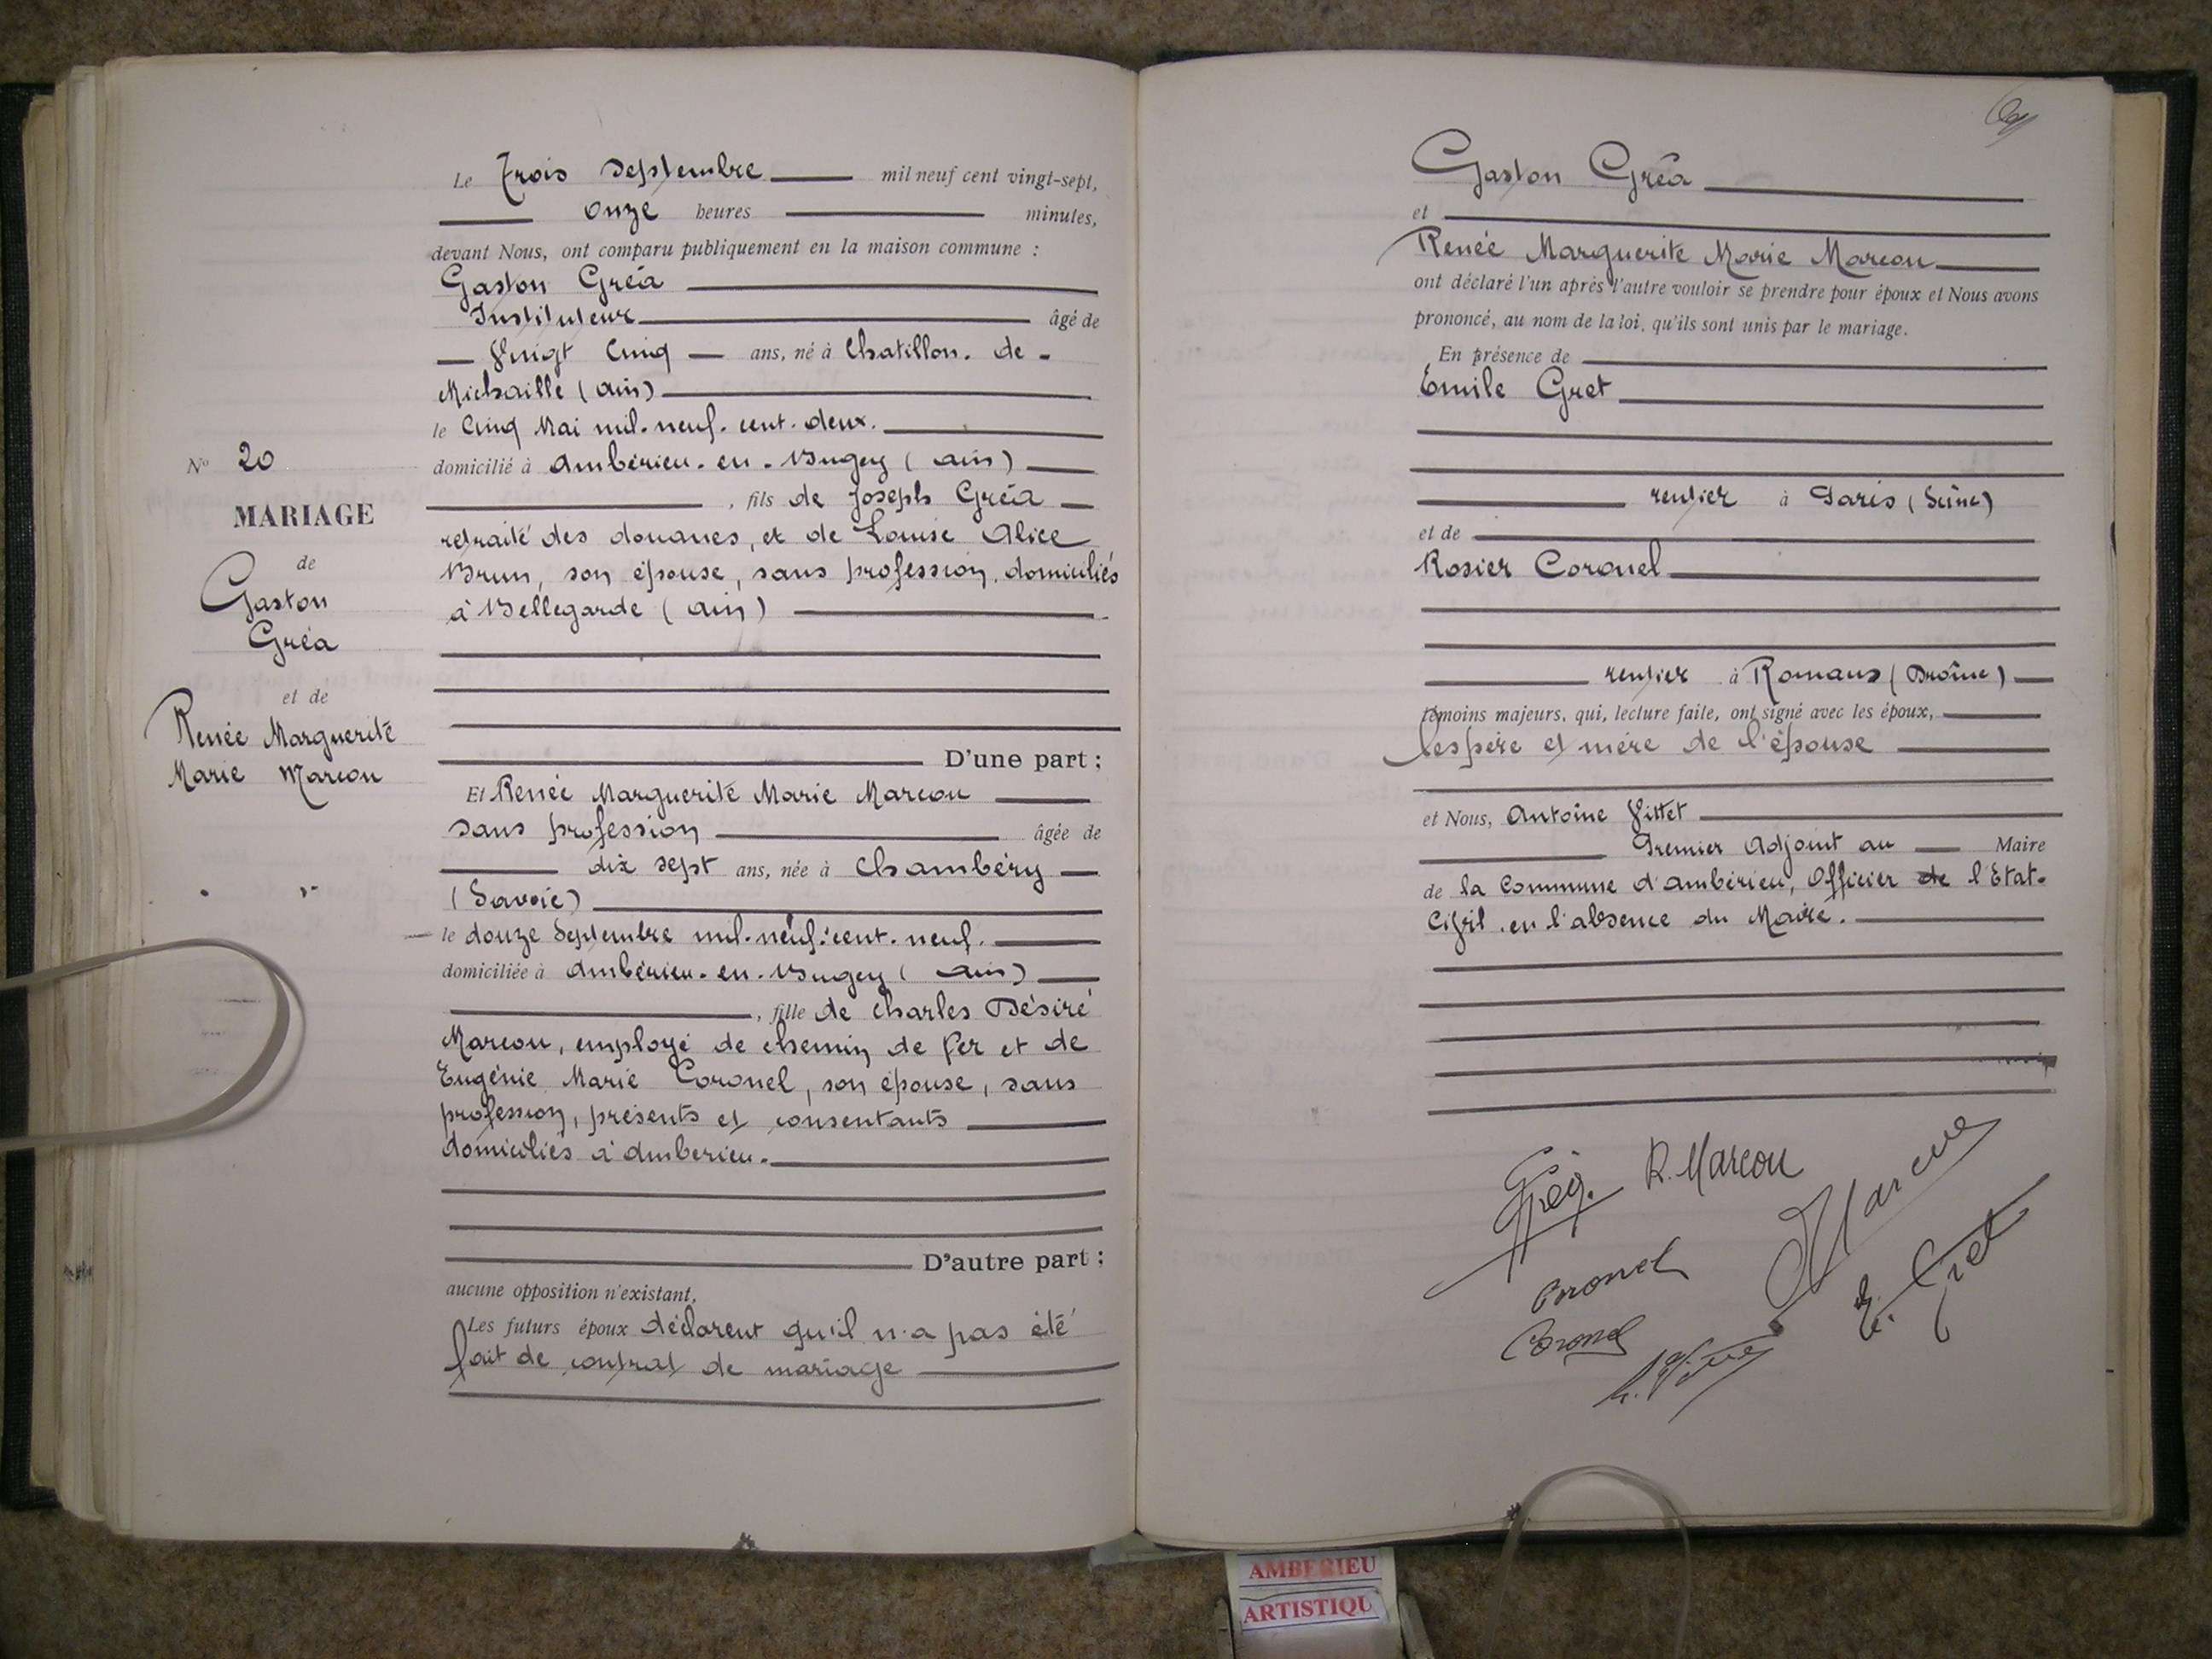 Le Trois Septembre mil neuf cent vingt-sept,
onze heures minutes,
devant Nous, ont comparu publiquement en la maison commune :
Gaston Gréa
Instituteur âgé de
Vingt Cinq ans, né à Chatillon. de -
Michaille (Ain)
le Cinq Mai mil. neuf. cent. deux.
domicilié à Ambérieu. en. Bugey (Ain)
, fils de Joseph Gréa
retraité des douanes, et de Louise Alice
Brun, son épouse, sans profession, domiciliés
à Bellegarde (Ain)
D'une part ;
Nº 20
MARIAGE
de
Gaston
Gréa
et de
Renée Marguerite
Marie Marcou
Et Renée Marguerite Marie Marcou
sans profession âgée de
dix sept ans, née à Chambéry
(Savoie)
le douze Septembre mil. neuf. cent. neuf.
domiciliée à Ambérieu. en. Bugey (Ain)
, fille de Charles Désiré
Marcou, employé de chemin de fer et de
Eugénie Marie Coronel, son épouse, sans
profession, présents et consentants
domiciliés à Amberieu.
D'autre part ;
aucune opposition n'existant,
Les futurs époux déclarent qu'il n'a pas été
fait de contrat de mariage
Gaston Gréa
et
Renée Marguerite Marie Marcou
ont déclaré l'un après l'autre vouloir se prendre pour époux et Nous avons
prononcé, au nom de la loi, qu'ils sont unis par le mariage.
En présence de
Emile Gret
rentier à Paris (Seine)
et de
Rosier Coronel
rentier à Romans (Drôme)
témoins majeurs, qui, lecture faite, ont signé avec les époux,
les père et mère de l'épouse
et Nous, Antoine Vittet
Premier Adjoint au Maire
de la Commune d'Ambérieu, Officier de l'Etat-
Civil, en l'absence du Maire.
Gréa. R. Marcou
Marcou
Coronel
E. Gret
Coronel
AMBERIEU
ARTISTIQU